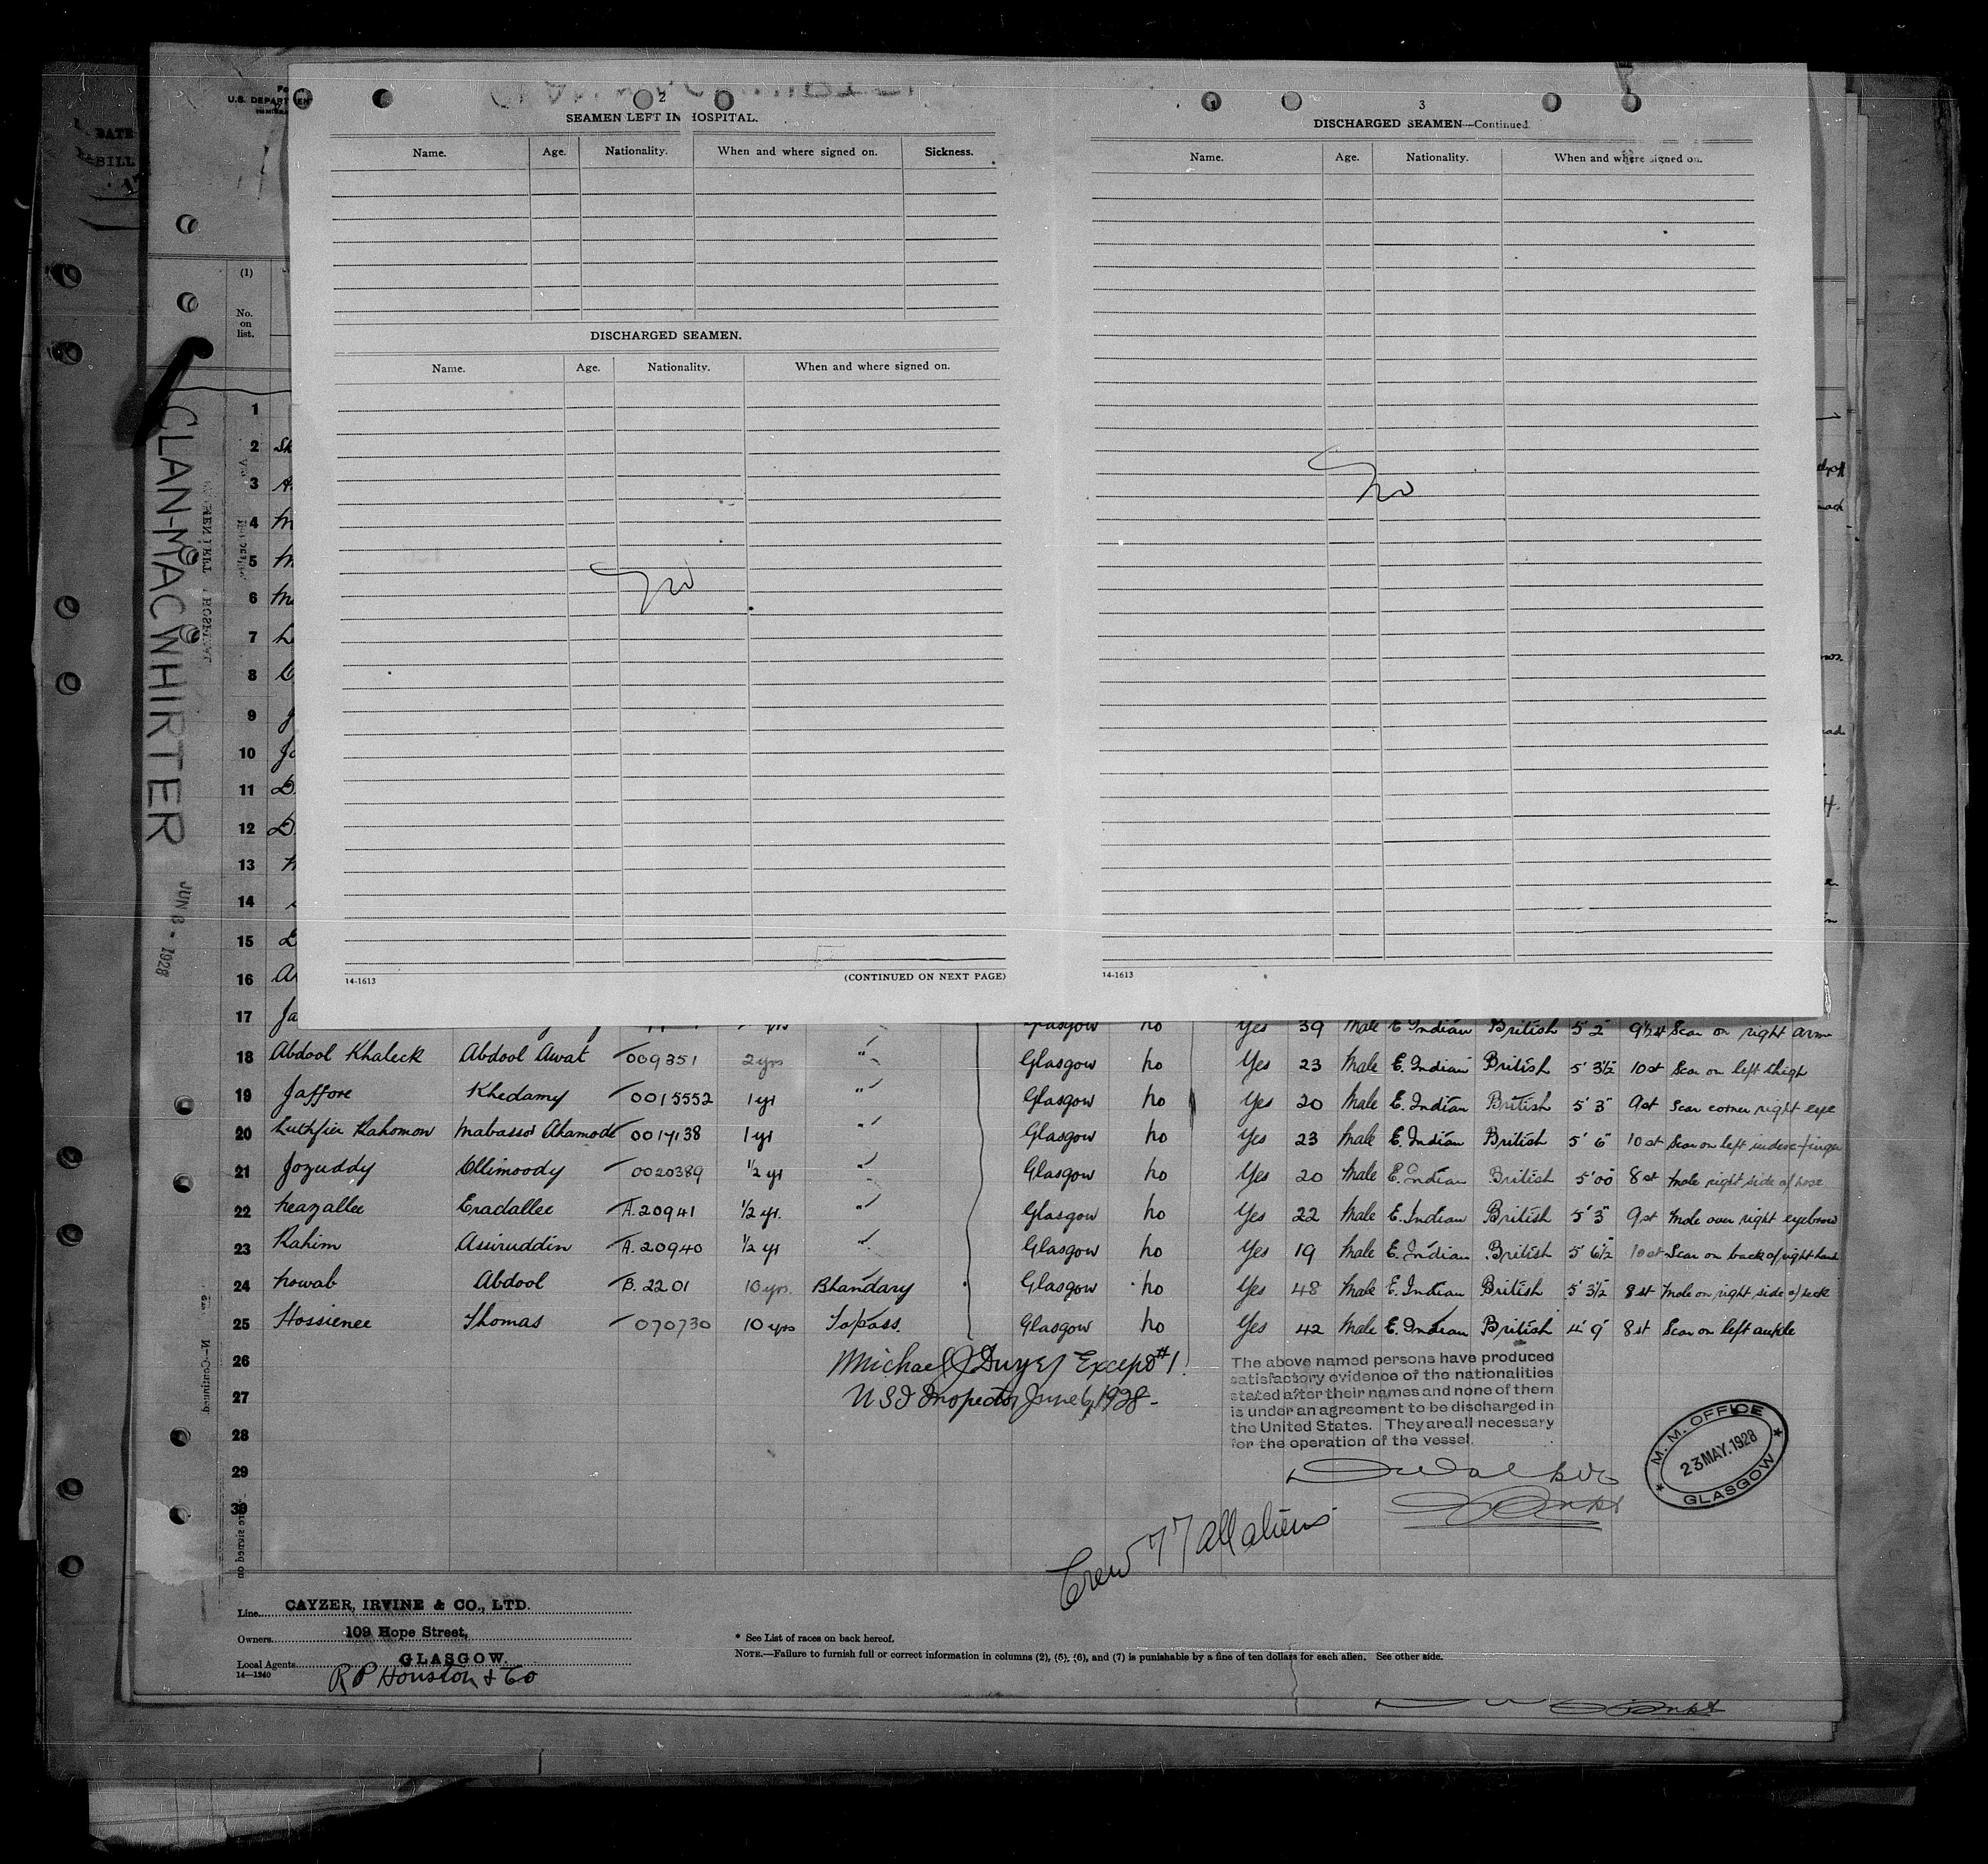 2
SEAMEN LEFT IN HOSPITAL.
Name. Age. Nationality. When and where signed on. Sickness.
DISCHARGED SEAMEN.
Name. Age. Nationality. When and where signed on.
no
14-1613
(CONTINUED ON NEXT PAGE)
3
DISCHARGED SEAMEN—Continued
Name. Age. Nationality. When and where signed on.
no
14-1613
U.S. DEPARTMEN
(1)
No. on list.
CLAN-MACWHIRTER
JUN 8 - 1928
1
2 Sh
3 A
4 M
5 M
6 Mo
7
8
9 J
10 Jo
11 D
12 D
13
14
15
16 A
17 Ja Glasgow no Yes 39 Male E Indian British 5' 2" 9½ st Scar on right arm
18 Abdool Khaleck Abdool Awat 009351 2 yrs " Glasgow no Yes 23 Male E. Indian British 5' 3½" 10 st Scar on left thigh
19 Jaffore Khedamy 0015552 1 yr " Glasgow no Yes 20 Male E. Indian British 5' 3" 9 st Scar corner right eye
20 Luthfier Rahomon Mabassor Ahamode 0017138 1 yr " Glasgow no Yes 23 Male E. Indian British 5' 6" 10 st Scar on left index finger
21 Jozuddy Ollimoody 0020389 ½ yr " Glasgow no Yes 20 Male E. Indian British 5' 00" 8 st Mole right side of nose
22 Neazallee Eradallee A. 20941 ½ yr. " Glasgow no Yes 22 Male E. Indian British 5' 3" 9 st Mole over right eyebrow
23 Rahim Assiruddin A. 20940 ½ yr " Glasgow no Yes 19 Male E. Indian British 5' 6½" 10 st Scar on back of right hand
24 Nowab Abdool B. 2201 10 yrs. Bhandary Glasgow no Yes 48 Male E. Indian British 5' 3½" 8 st Mole on right side of neck
25 Hossienee Thomas 070730 10 yrs Topass. Glasgow no Yes 42 Male E. Indian British 4' 9" 8 st Scar on left ankle
26 Michael J Dwyer Except #1.
27 U S I Inspector June 6, 1928 -
28
29
30
The above named persons have produced
satisfactory evidence of the nationalities
stated after their names and none of them
is under an agreement to be discharged in
the United States. They are all necessary
for the operation of the vessel.
M. M. OFFICE
23 MAY. 1928
GLASGOW
Crew 77 all aliens
Line CAYZER, IRVINE & CO., LTD.
Owners 109 Hope Street,
Local Agents GLASGOW.
14—1240
R P Houston & Co
* See List of races on back hereof.
NOTE.—Failure to furnish full or correct information in columns (2), (5), (6), and (7) is punishable by a fine of ten dollars for each alien. See other side.